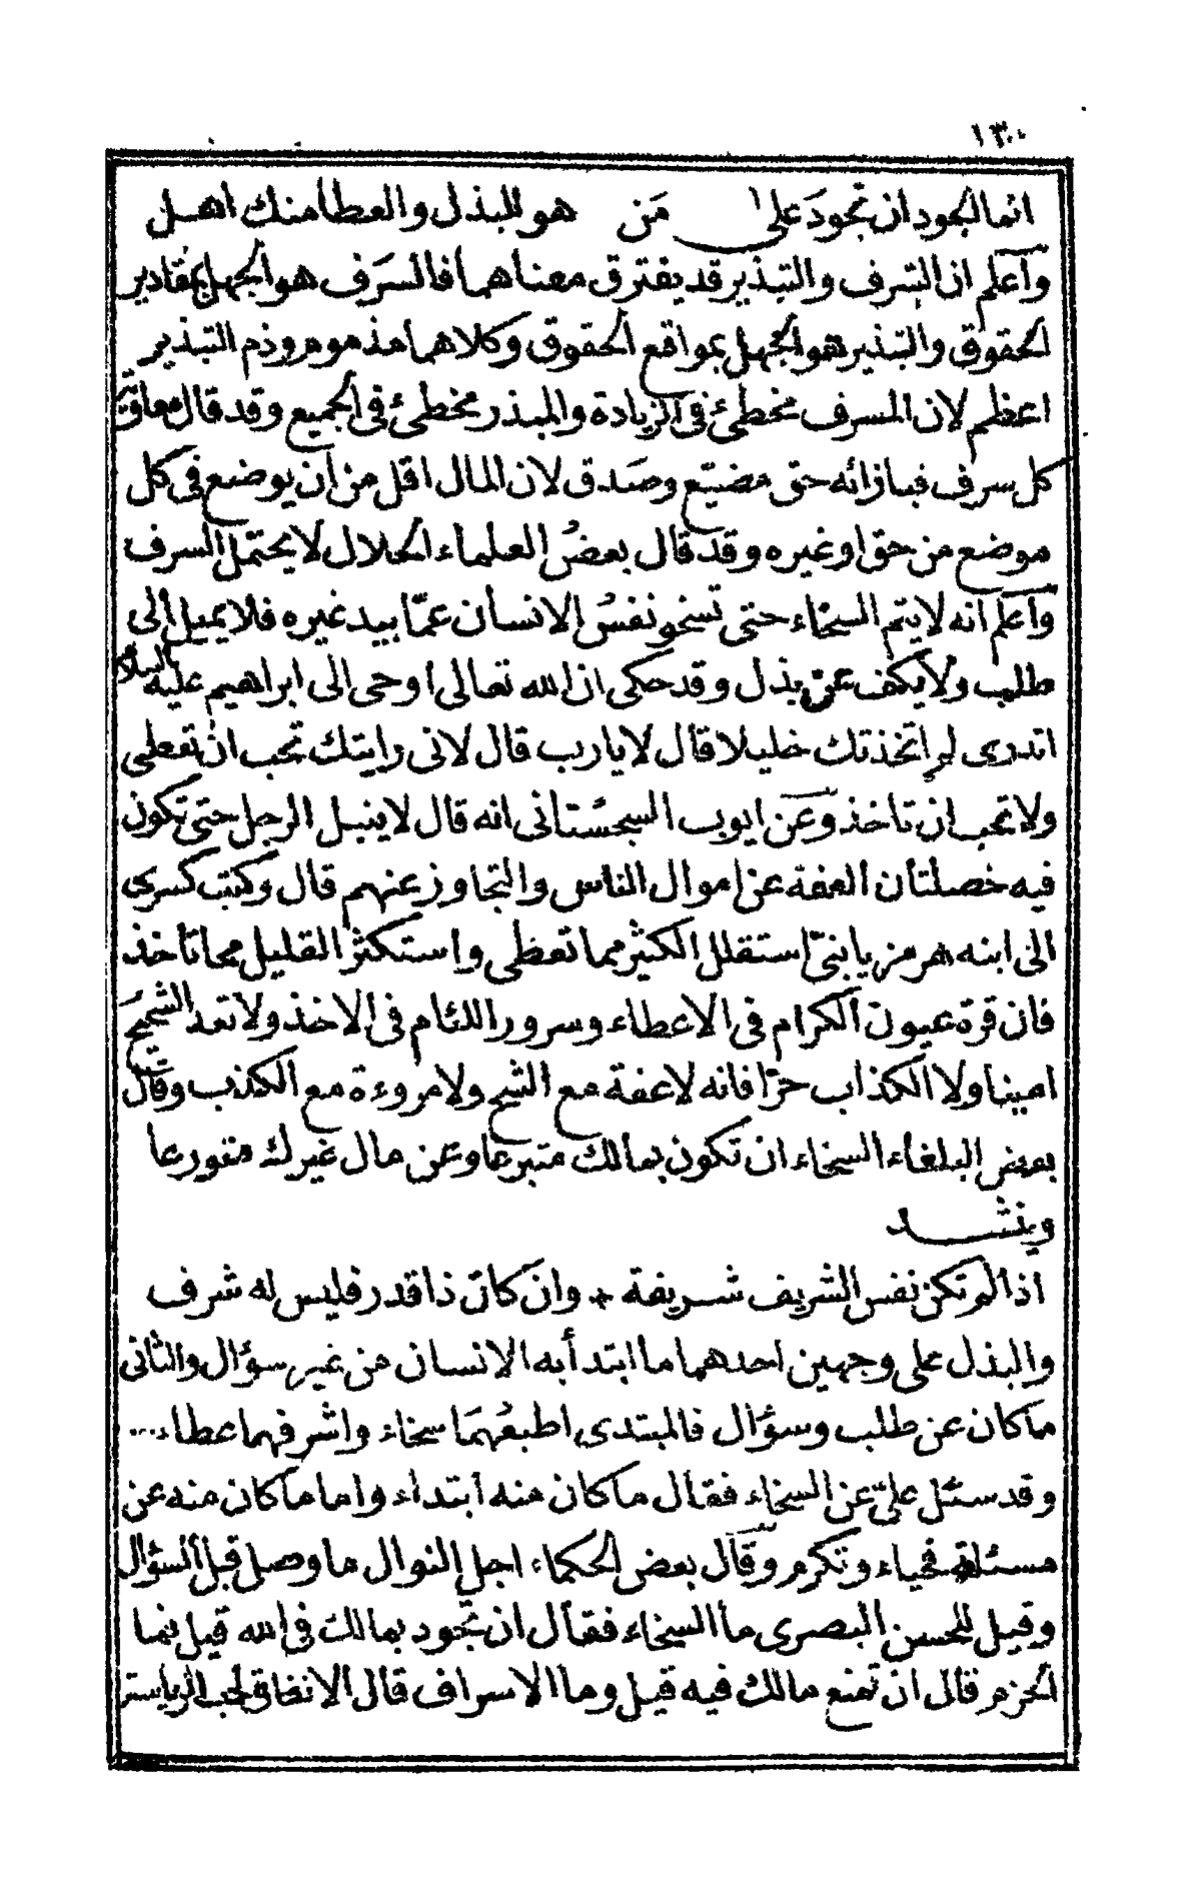 ١٣٠
انما الجود ان تجودَ على مَن هو للبذل والعطا منك اهل
واعلم ان السرف والتبذير قد يفترق معناهما فالسَرَف هو الجهل بمقادير
الحقوق والتبذير هو الجهل بمواقع الحقوق وكلاهما مذموم وذم التبذير
اعظم لان المسرف مخطئ فى الزيادة والمبذر مخطئ فى الجميع وقد قال معاوية
كل سرف فبازائه حق مضيّع وصَدق لان المال اقل من ان يوضع فى كل
موضع من حق اوغيره وقد قال بعضُ العلماء الحلال لا يحتمل السرف
واعلم انه لا يتم السخاء حتى تسخو نفسُ الانسان عمّا بيد غيره فلا يميل الى
طلب ولا يكف عن بذل وقد حكى ان الله تعالى اوحى الى ابراهيم عليه السلام
اتدرى لم اتخذتك خليلا قال لا يارب قال لانى رايتك تحب ان تعطى
ولا تحب ان تاخذ وعن ايوب السجستانى انه قال لا ينبل الرجل حتى تكون
فيه خصلتان العفة عن اموال الناس والتجاوز عنهم قال وكتب كسرى
الى ابنه هرمز يا بنىّ استقلل الكثير مما تعطى واستكثر القليل مما تاخذ
فان قرة عيون الكرام فى الاعطاء وسرور اللئام فى الاخذ ولا تعد الشحيحَ
امينا ولا الكذاب حرّا فانه لا عفة مع الشح ولا مروءة مع الكذب وقال
بعض البلغاء السخاء ان تكون بمالك متبرعا وعن مال غيرك متورعا
وينشد
اذا لم تكن نفس الشريف شريفة * وان كان ذا قدر فليس له شرف
والبذل على وجهين احدهما ما ابتدأ به الانسان من غير سؤال والثانى
ما كان عن طلب وسؤال فالمبتدى اطبعُهمَا سخاء واشرفهما عطاء...
وقد سئل علىّ عن السخاء فقال ما كان منه ابتداء واما ما كان منه عن
مسئلة فحياء وتكرم وقال بعض الحكماء اجل النوال ما وصل قبل السؤال
وقيل للحسن البصرى ما السخاء فقال ان تجود بمالك فى الله قيل فما
الحزم فقال ان تمنع مالك فيه قيل وما الاسراف قال الانفاق لحب الرياسة